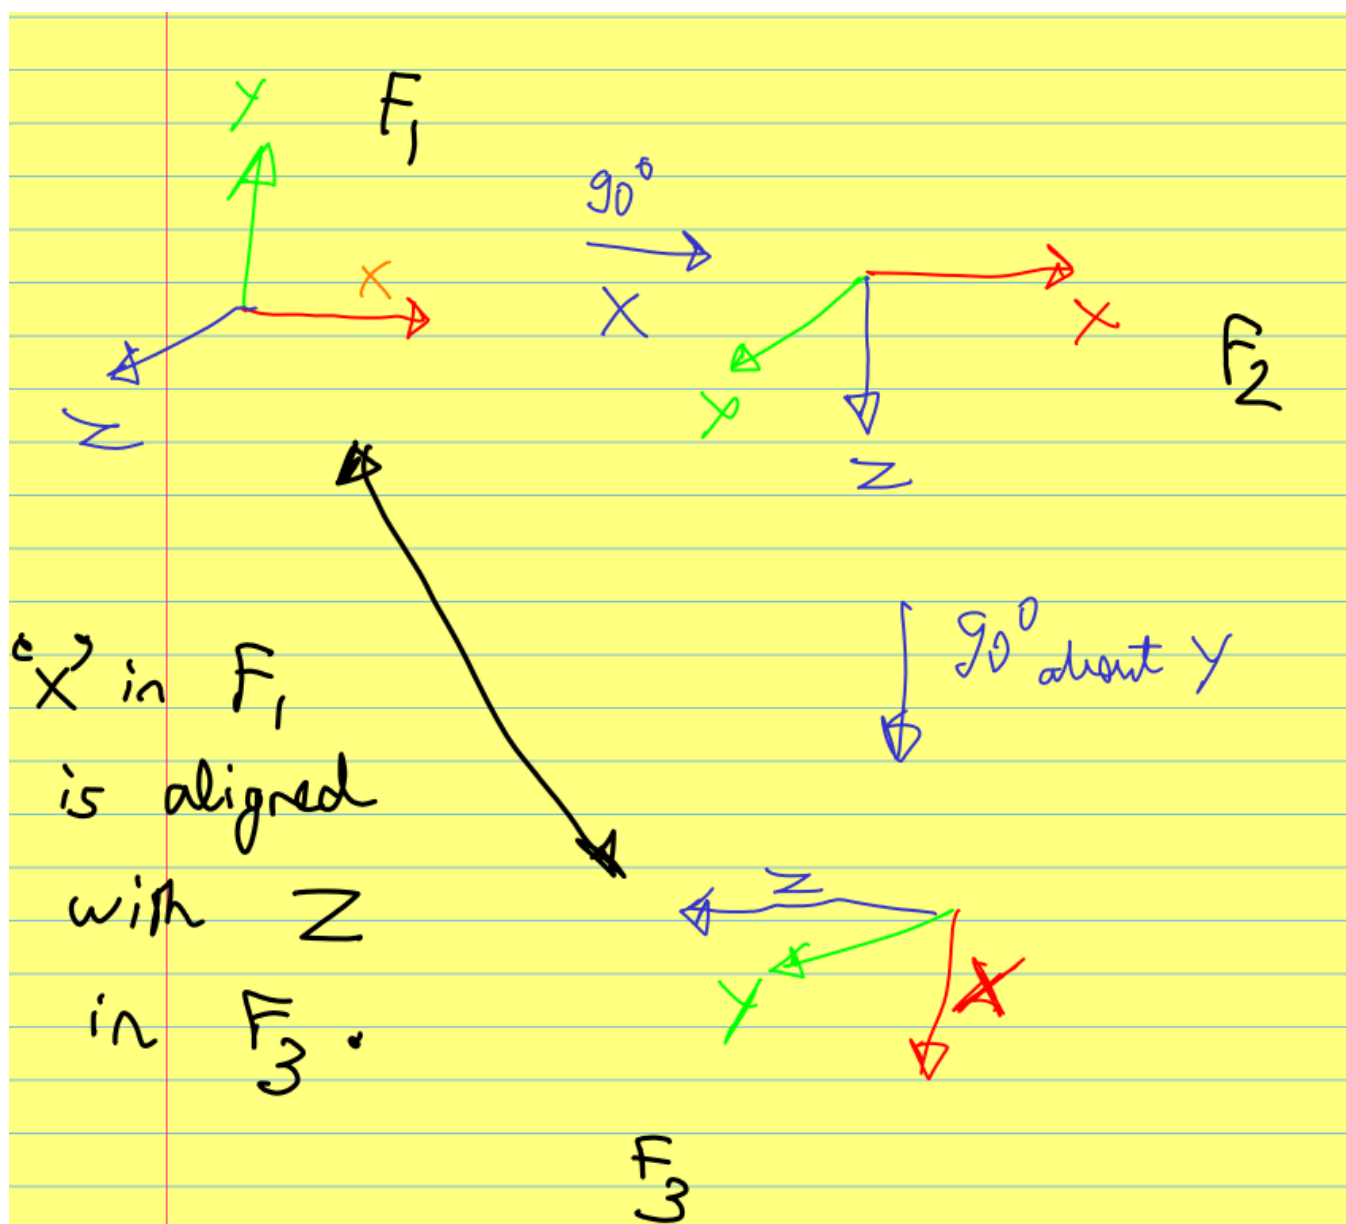 Y
F1
90°
X
X
X
F2
Z
Y
Z
90° about Y
"X" in F1
is aligned
with Z
in F3.
Z
Y
X
F3